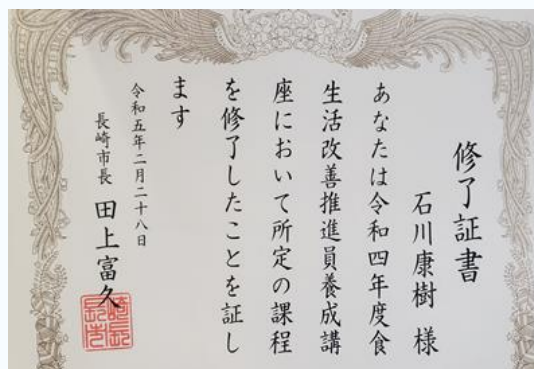 修了証書
石川康樹 様
あなたは令和四年度食
生活改善推進員養成講
座において所定の課程
を修了したことを証し
ます
令和五年二月二十八日
長崎市長 田上富久